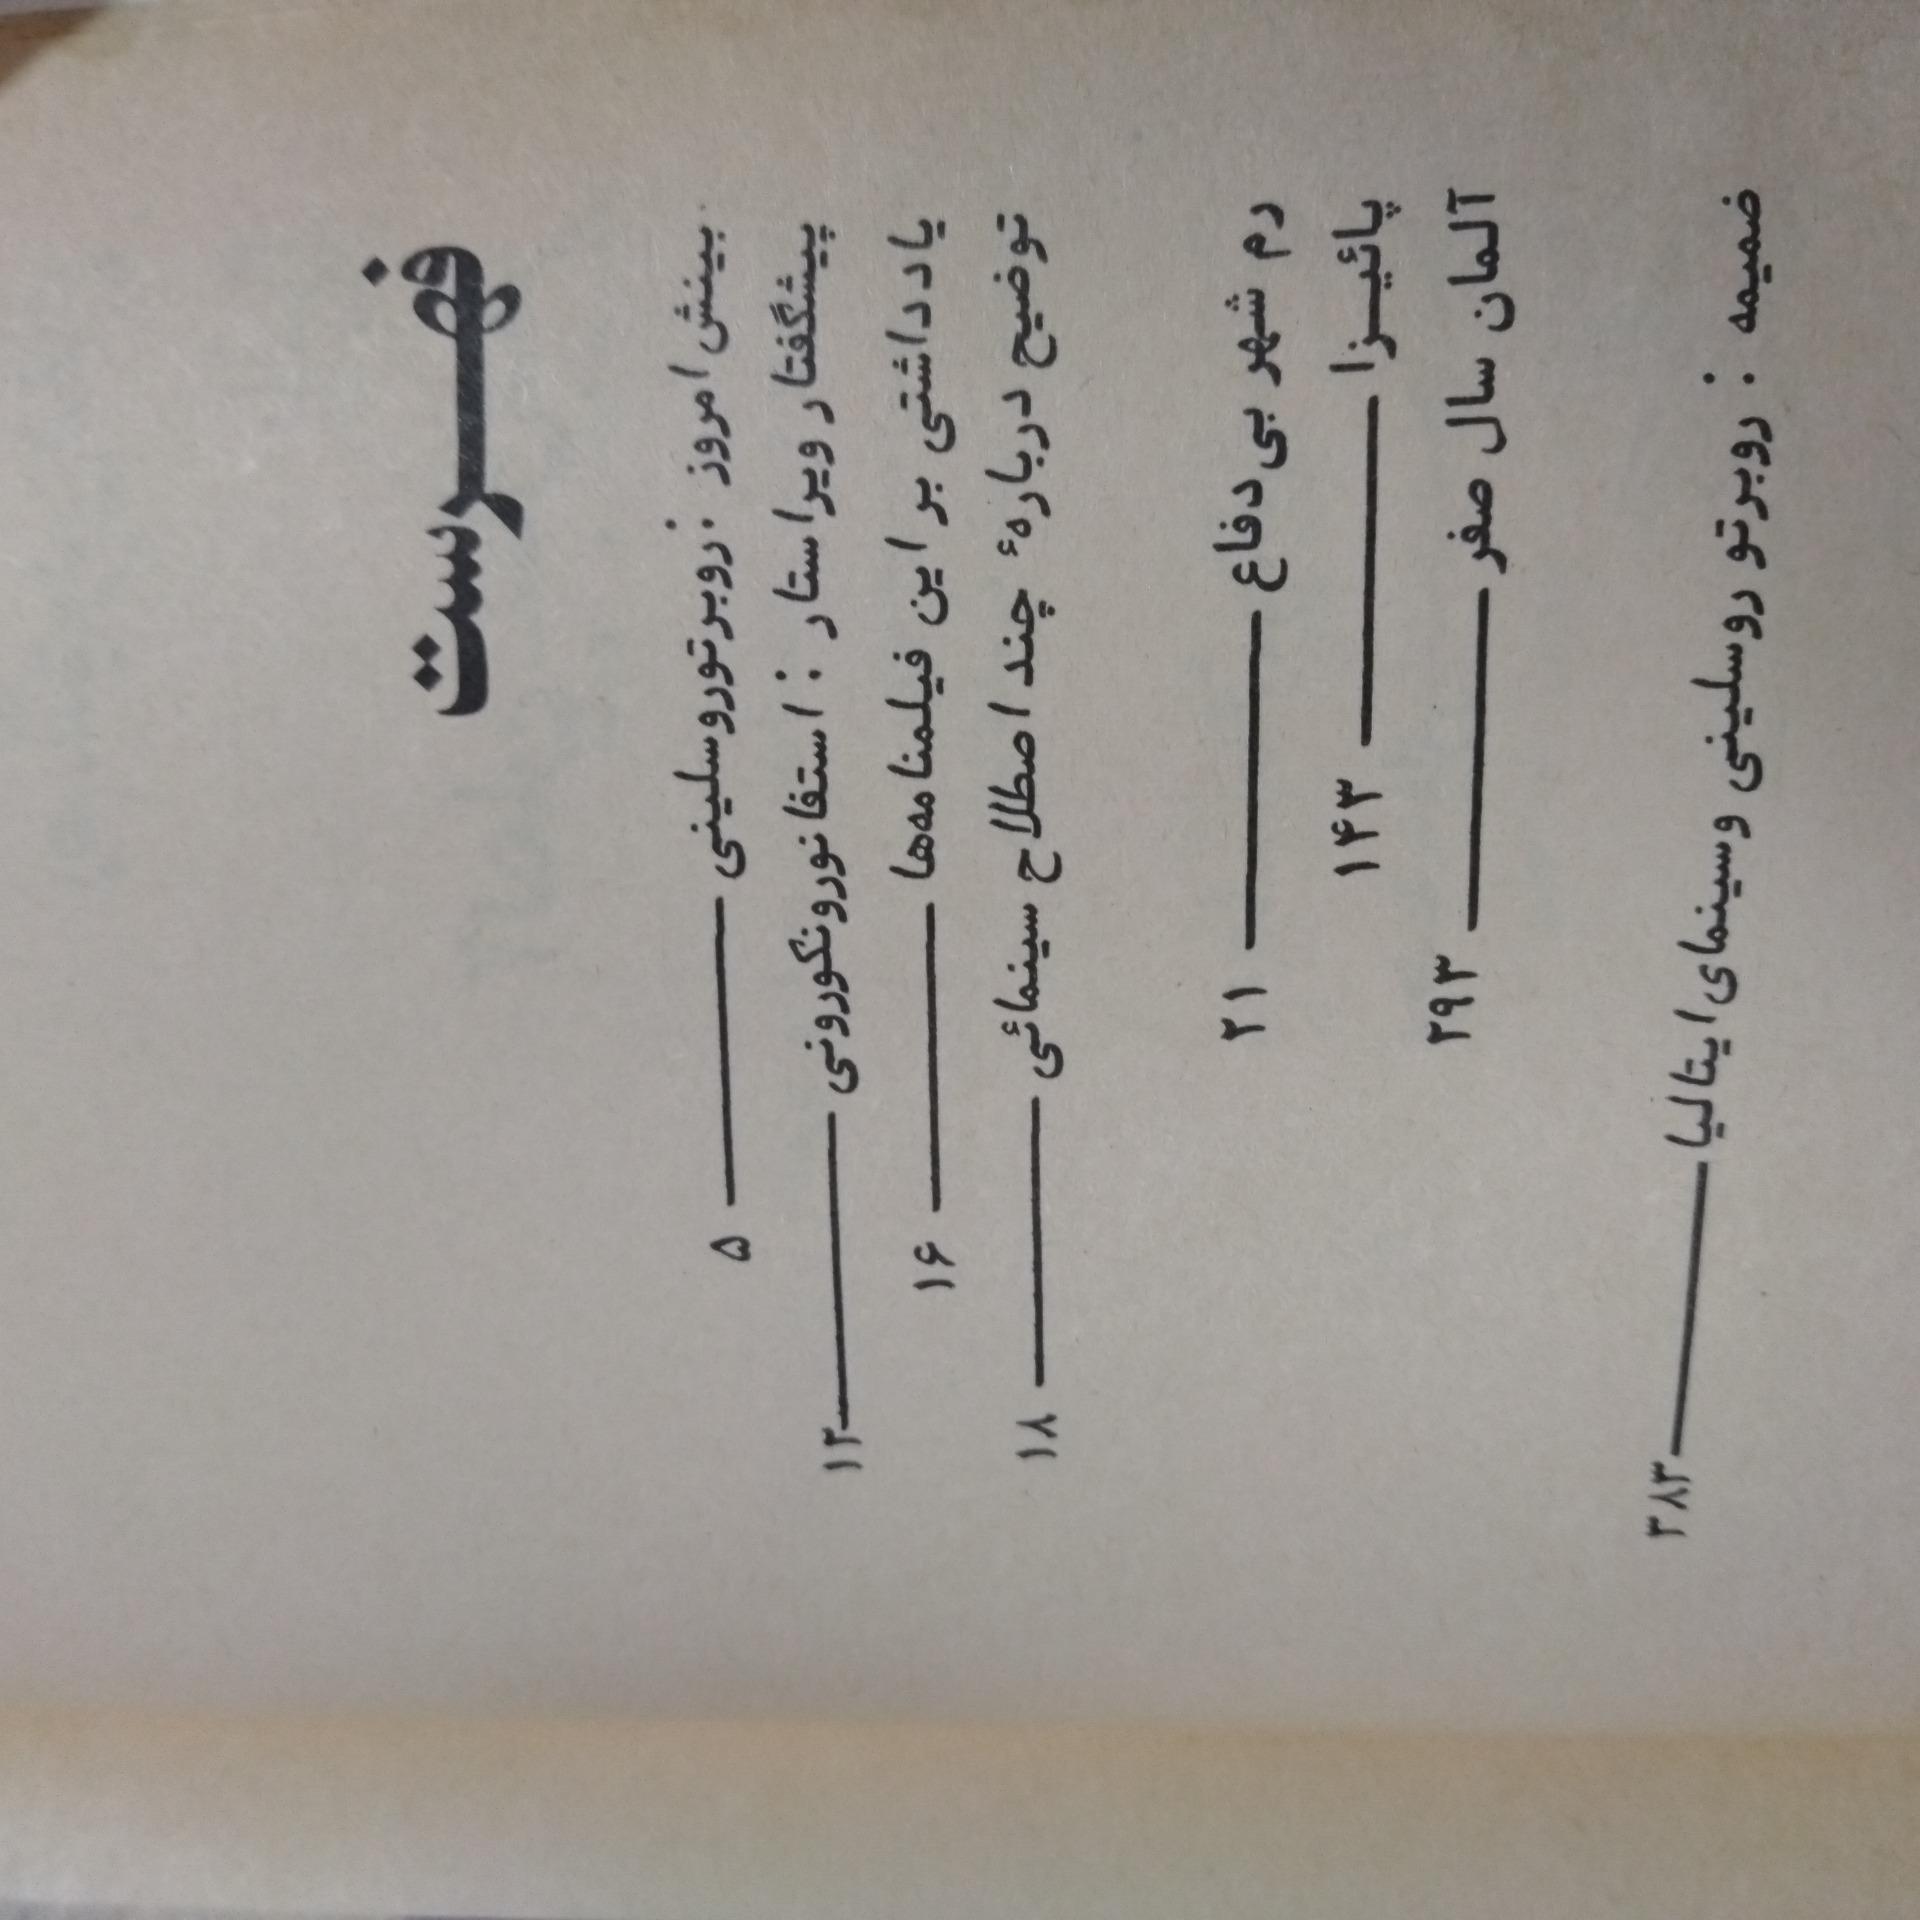 فهرست
بینش امروز : روبرتو روسلینی ——— ۵
پیشگفتار ویراستار : استفانو رونکورونی ——— ۱۲
یادداشتی بر این فیلمنامه‌ها ——— ۱۶
توضیح درباره‌ٔ چند اصطلاح سینمائی ——— ۱۸
رم شهر بی دفاع ——— ۲۱
پائیزا ——— ۱۴۳
آلمان سال صفر ——— ۲۹۳
ضمیمه : روبرتو روسلینی و سینمای ایتالیا ——— ۳۸۳